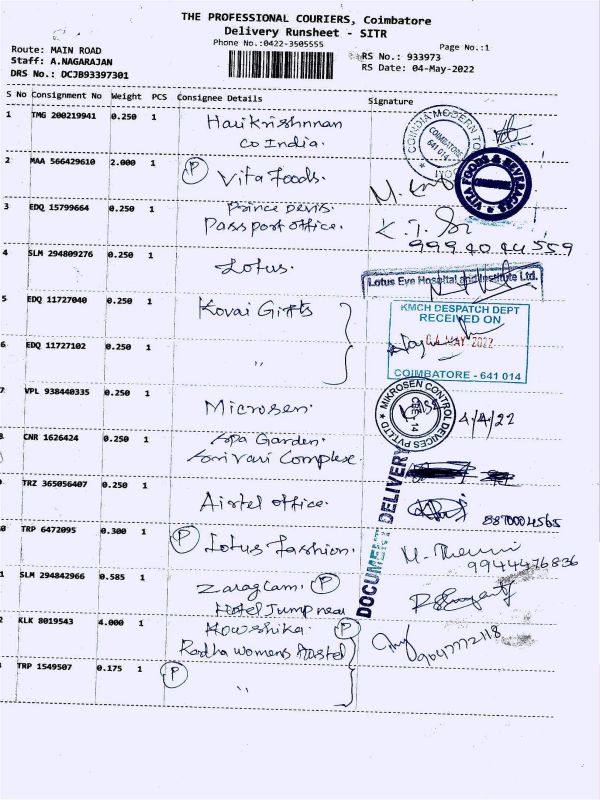 THE PROFESSIONAL COURIERS, Coimbatore
Delivery Runsheet - SITR
Phone No.:0422-3505555
Page No.:1
Route: MAIN ROAD
Staff: A.NAGARAJAN
DRS No.: DCJB93397301
RS No.: 933973
RS Date: 04-May-2022
S No Consignment No Weight PCS Consignee Details Signature
1 TMG 200219941 0.250 1 Harikrishnnan
Co India.
COINDIA MODERN
COIMBATORE
641 014
2 MAA 566429610 2.000 1 P Vita Foods.
VITA FOODS & BEVERAGES
3 EDQ 15799664 0.250 1 Prince
Passport office.
9994044559
4 SLM 294809276 0.250 1 Lotus.
Lotus Eye Hospital and Institute Ltd.
5 EDQ 11727040 0.250 1 Kovai Gifts
KMCH DESPATCH DEPT
RECEIVED ON
04 MAY 2022
COIMBATORE - 641 014
6 EDQ 11727102 0.250 1 "
7 VPL 938440335 0.250 1 Microsen.
MIKROSEN CONTROL DEVICES PVT LTD
4/4/22
CNR 1626424 0.250 1 Spa Garden.
Complexe
TRZ 365056407 0.250 1 Airtel office.
8870004565
DOCUMENT DELIVERY
0 TRP 6472095 0.300 1 P Lotus Fashion.
9944476836
1 SLM 294842966 0.585 1 P
Hotel Jump near
2 KLK 8019543 4.000 1 Kowshika. P
Radha womens Hostel
9047772118
TRP 1549507 0.175 1 P "